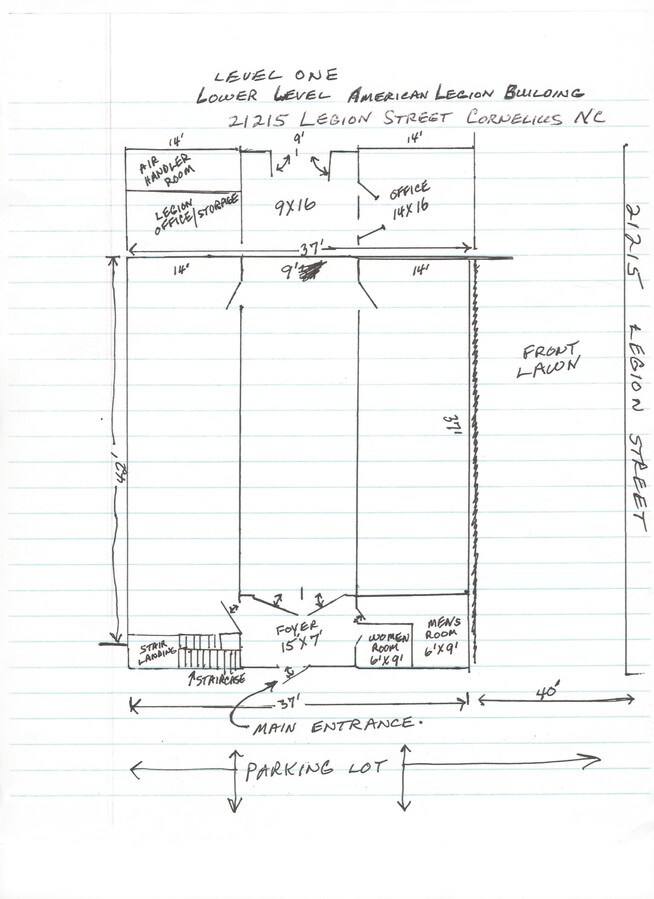 LEVEL ONE
LOWER LEVEL AMERICAN LEGION BUILDING
21215 LEGION STREET CORNELIUS NC
14'
9'
14'
AIR
HANDLER
ROOM
LEGION
OFFICE/STORAGE
9X16
OFFICE
14X16
37'
14'
9'
14'
21215 LEGION STREET
FRONT
LAWN
37'
42'
FOYER
15'X7'
STAIR
LANDING
STAIRCASE
WOMEN
ROOM
6'X9'
MENS
ROOM
6'X9'
37'
40'
MAIN ENTRANCE.
PARKING LOT